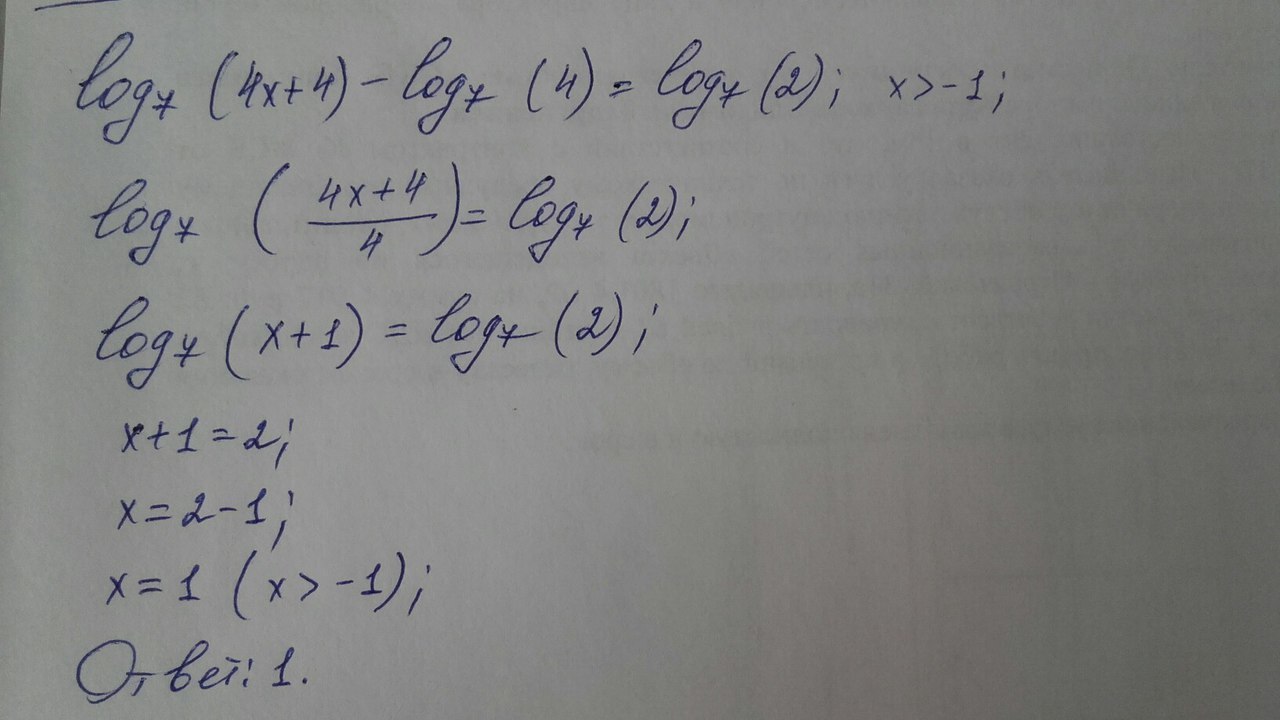 log₇ (4x+4) - log₇ (4) = log₇ (2); x > -1;
log₇ ((4x+4)/4) = log₇ (2);
log₇ (x+1) = log₇ (2);
x+1=2;
x=2-1;
x=1 (x > -1);
Ответ: 1.